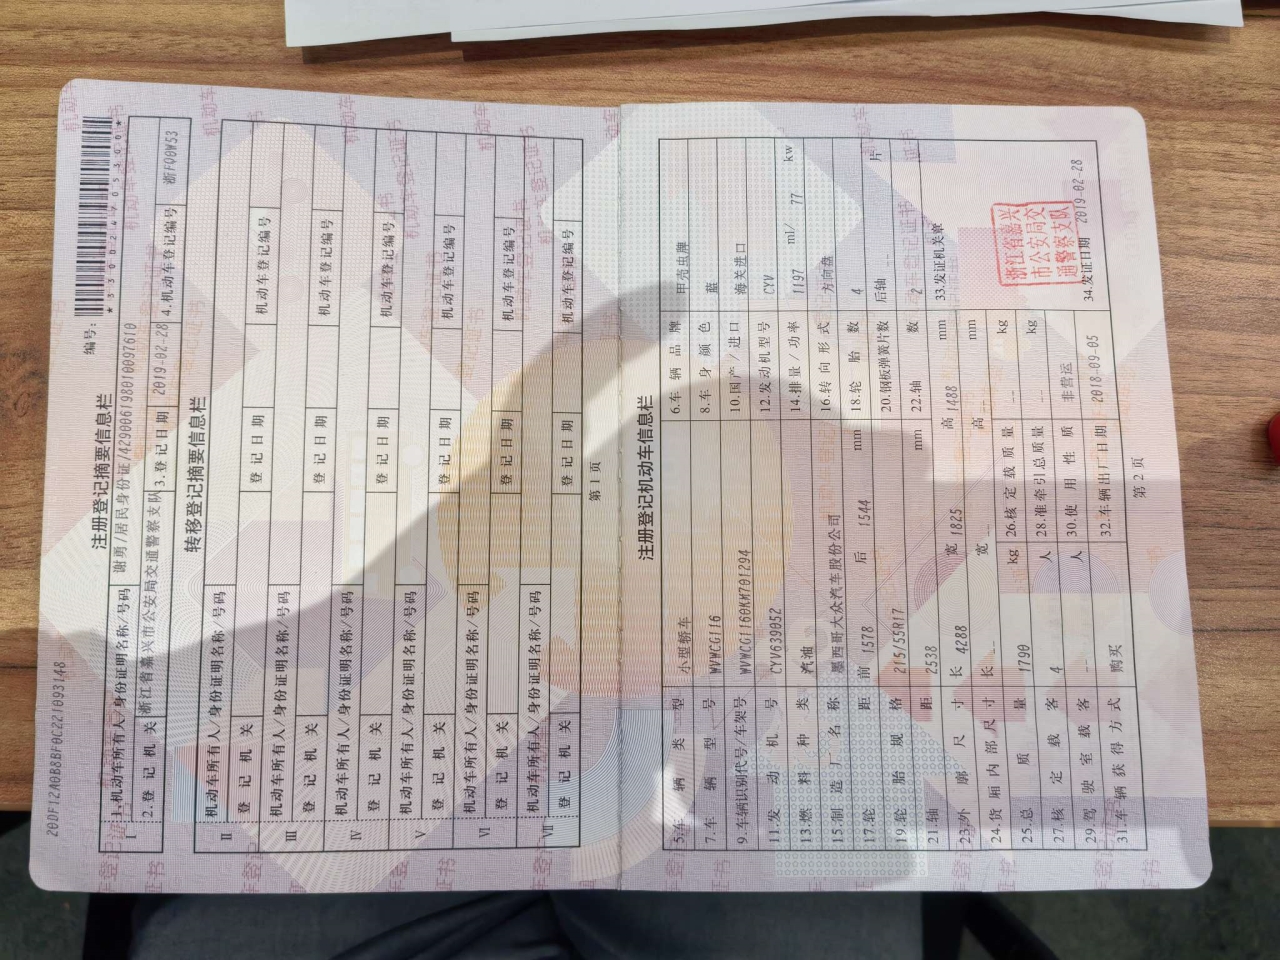 20DF12A0B8BF0C221093148
编号：
*330024705300*
注册登记摘要信息栏
Ⅰ 1.机动车所有人/身份证明名称/号码 谢勇/居民身份证/429006198010097610
2.登记机关 浙江省嘉兴市公安局交通警察支队 3.登记日期 2019-02-28 4.机动车登记编号 浙FQ0W53
转移登记摘要信息栏
Ⅱ 机动车所有人/身份证明名称/号码
登记机关 登记日期 机动车登记编号
Ⅲ 机动车所有人/身份证明名称/号码
登记机关 登记日期 机动车登记编号
Ⅳ 机动车所有人/身份证明名称/号码
登记机关 登记日期 机动车登记编号
Ⅴ 机动车所有人/身份证明名称/号码
登记机关 登记日期 机动车登记编号
Ⅵ 机动车所有人/身份证明名称/号码
登记机关 登记日期 机动车登记编号
Ⅶ 机动车所有人/身份证明名称/号码
登记机关 登记日期 机动车登记编号
第1页
注册登记机动车信息栏
5.车辆类型 小型轿车 6.车辆品牌 甲壳虫牌
7.车辆型号 WVWCG116 8.车身颜色 蓝
9.车辆识别代号/车架号 WVWCG1160KM701294 10.国产/进口 海关进口
11.发动机号 CYV639052 12.发动机型号 CYV
13.燃料种类 汽油 14.排量/功率 1197 ml/ 77 kw
15.制造厂名称 墨西哥大众汽车股份公司 16.转向形式 方向盘
17.轮距 前 1578 后 1544 mm 18.轮胎数 4
19.轮胎规格 215/55R17 20.钢板弹簧片数 后轴 -- 片
21.轴距 2538 mm 22.轴数 2
23.外廓尺寸 长 4288 宽 1825 高 1488 mm 33.发证机关章
24.货厢内部尺寸 长 -- 宽 -- 高 -- mm
25.总质量 1790 kg 26.核定载质量 -- kg
27.核定载客 4 人 28.准牵引总质量 -- kg
29.驾驶室载客 -- 人 30.使用性质 非营运
31.车辆获得方式 购买 32.车辆出厂日期 2018-09-05 34.发证日期 2019-02-28
浙江省嘉兴
市公安局交
通警察支队
第2页